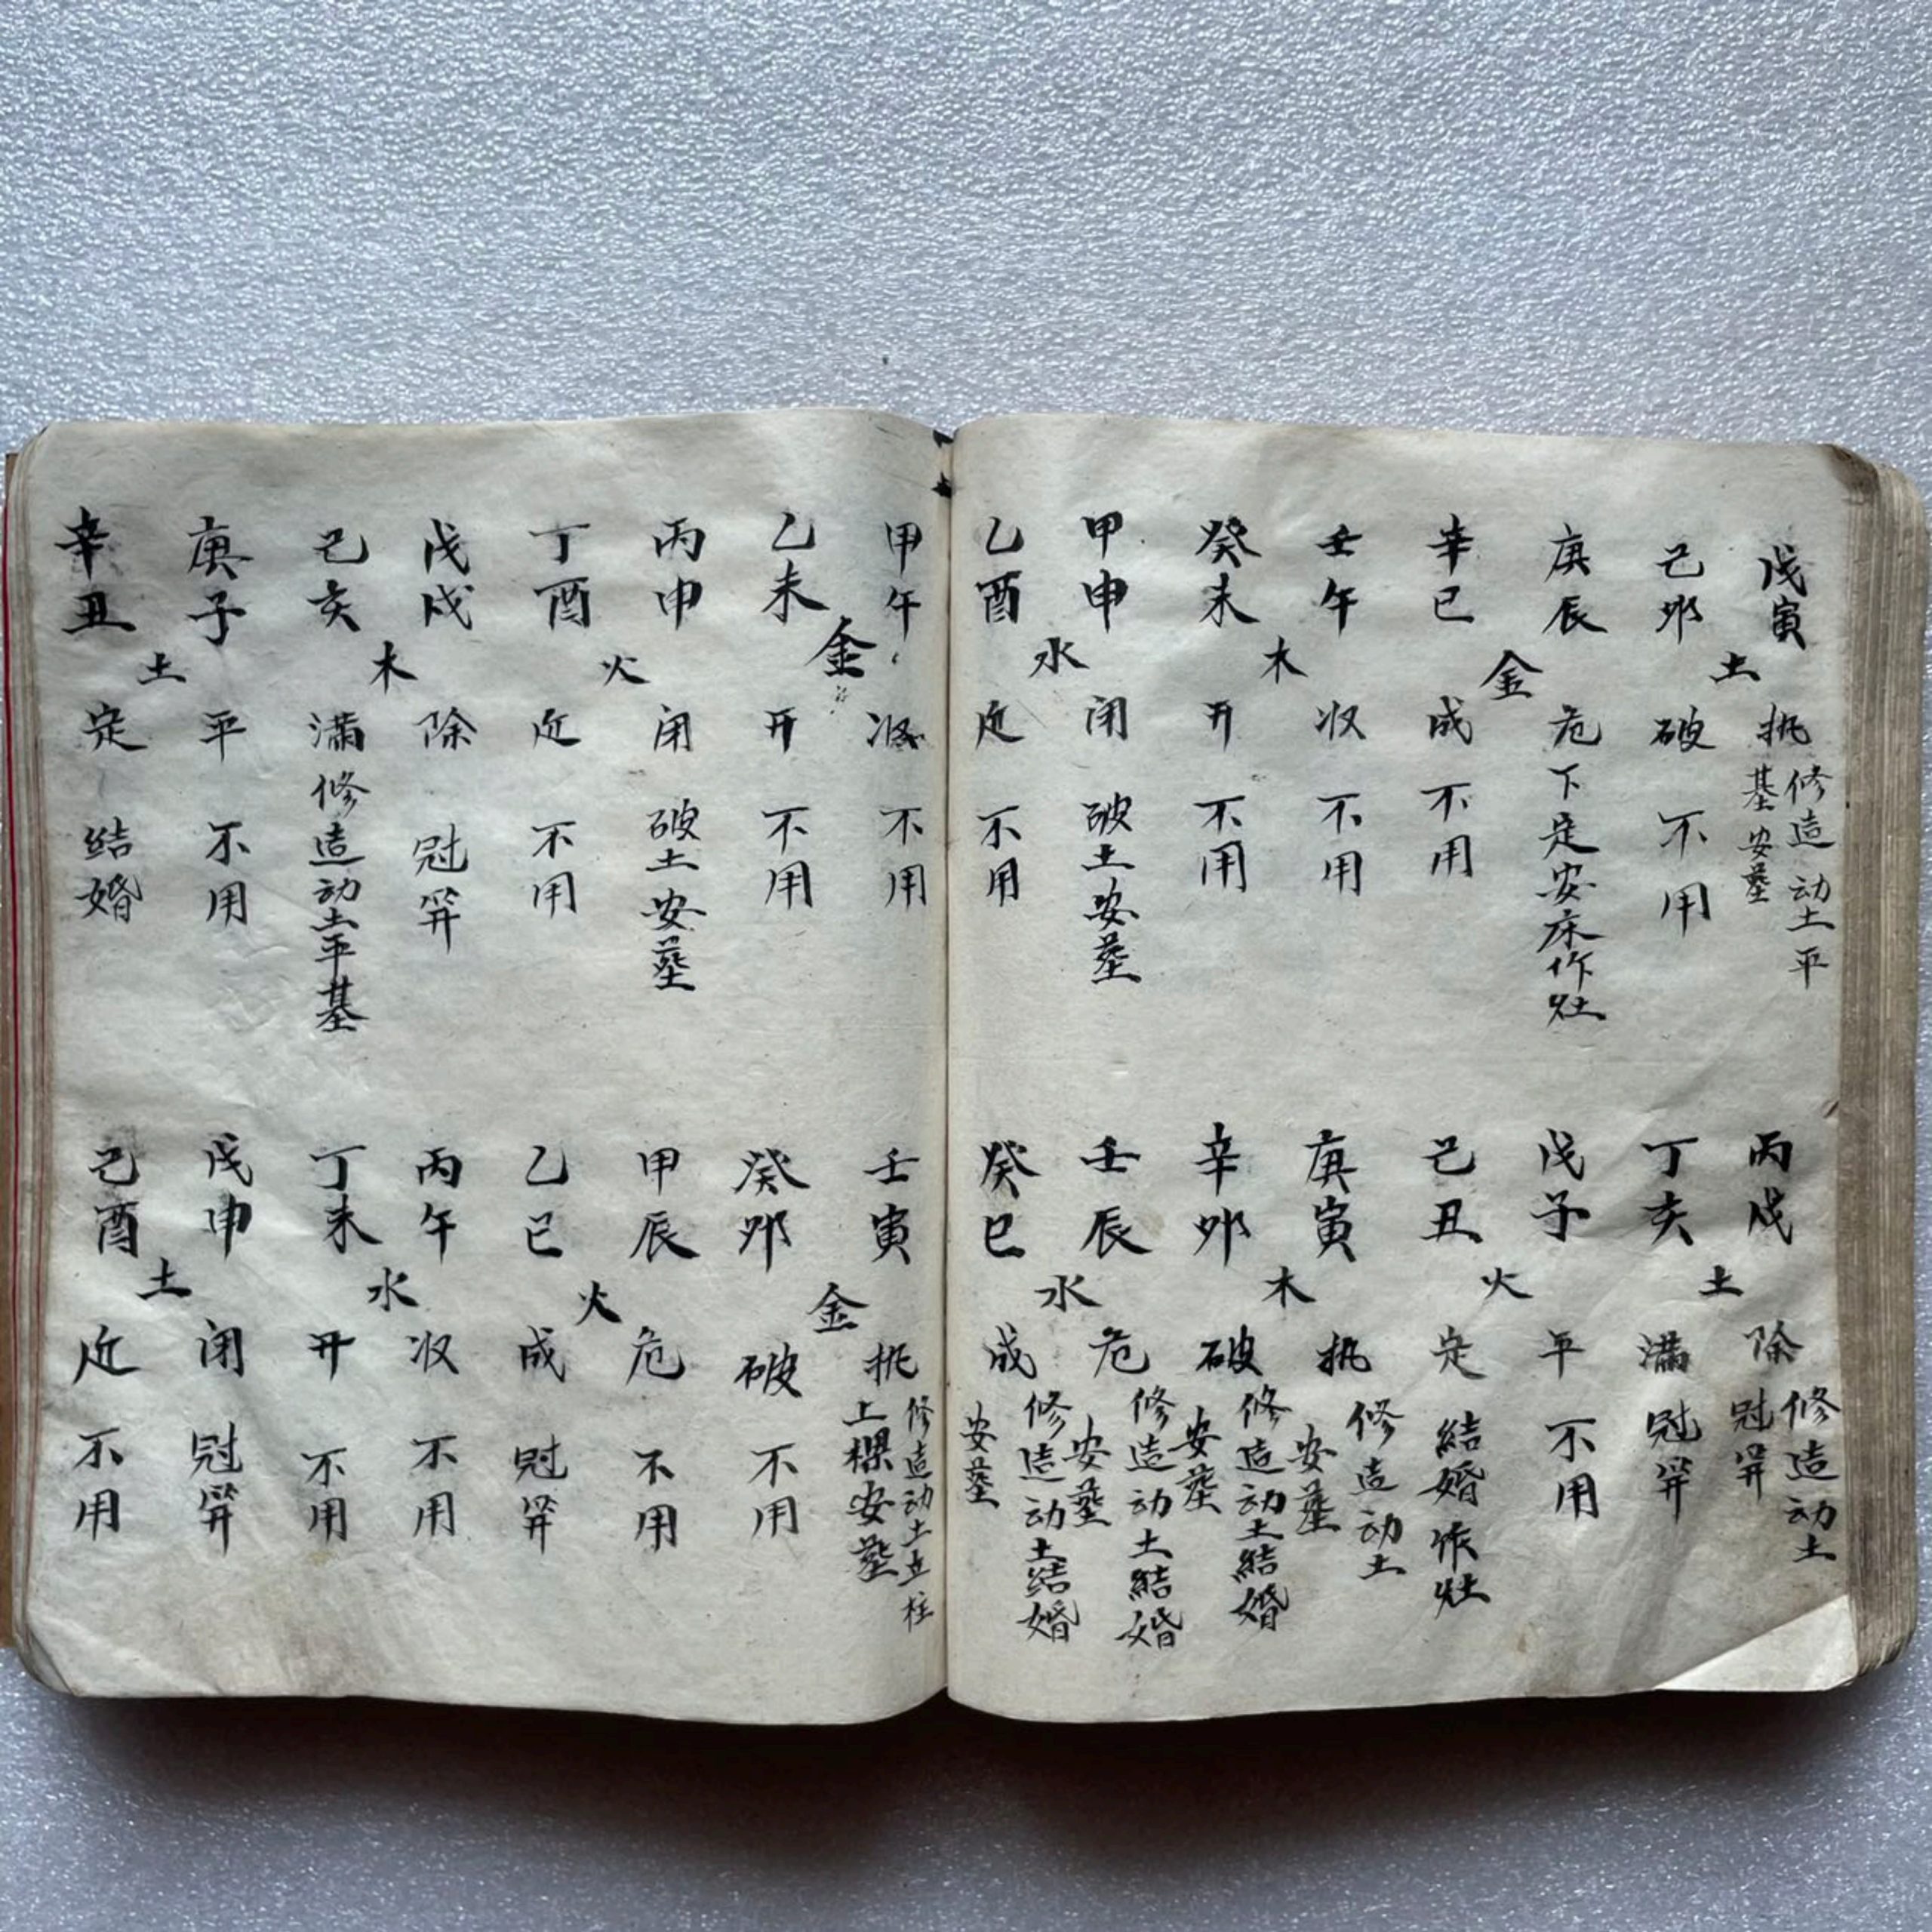 戊寅 执 修造动土平
基安塟
土
己卯 破 不用
庚辰 危 下定安床作灶
金
辛巳 成 不用
壬午 收 不用
木
癸未 开 不用
甲申 闭 破土安塟
水
乙酉 建 不用
丙戌 除 修造动土
冠笄
土
丁亥 满 冠笄
戊子 平 不用
火
己丑 定 結婚作灶
庚寅 执 修造动土
安塟
木
辛卯 破 修造动土結婚
安塟
壬辰 危 修造动土結婚
安塟
水
癸巳 成 修造动土结婚
安塟
甲午 收 不用
金
乙未 开 不用
丙申 闭 破土安塟
火
丁酉 建 不用
戊戌 除 冠笄
木
己亥 满 修造动土平基
庚子 平 不用
土
辛丑 定 結婚
壬寅 执 修造动土立柱
上樑安塟
金
癸卯 破 不用
甲辰 危 不用
火
乙巳 成 冠笄
丙午 收 不用
水
丁未 开 不用
戊申 闭 冠笄
土
己酉 建 不用